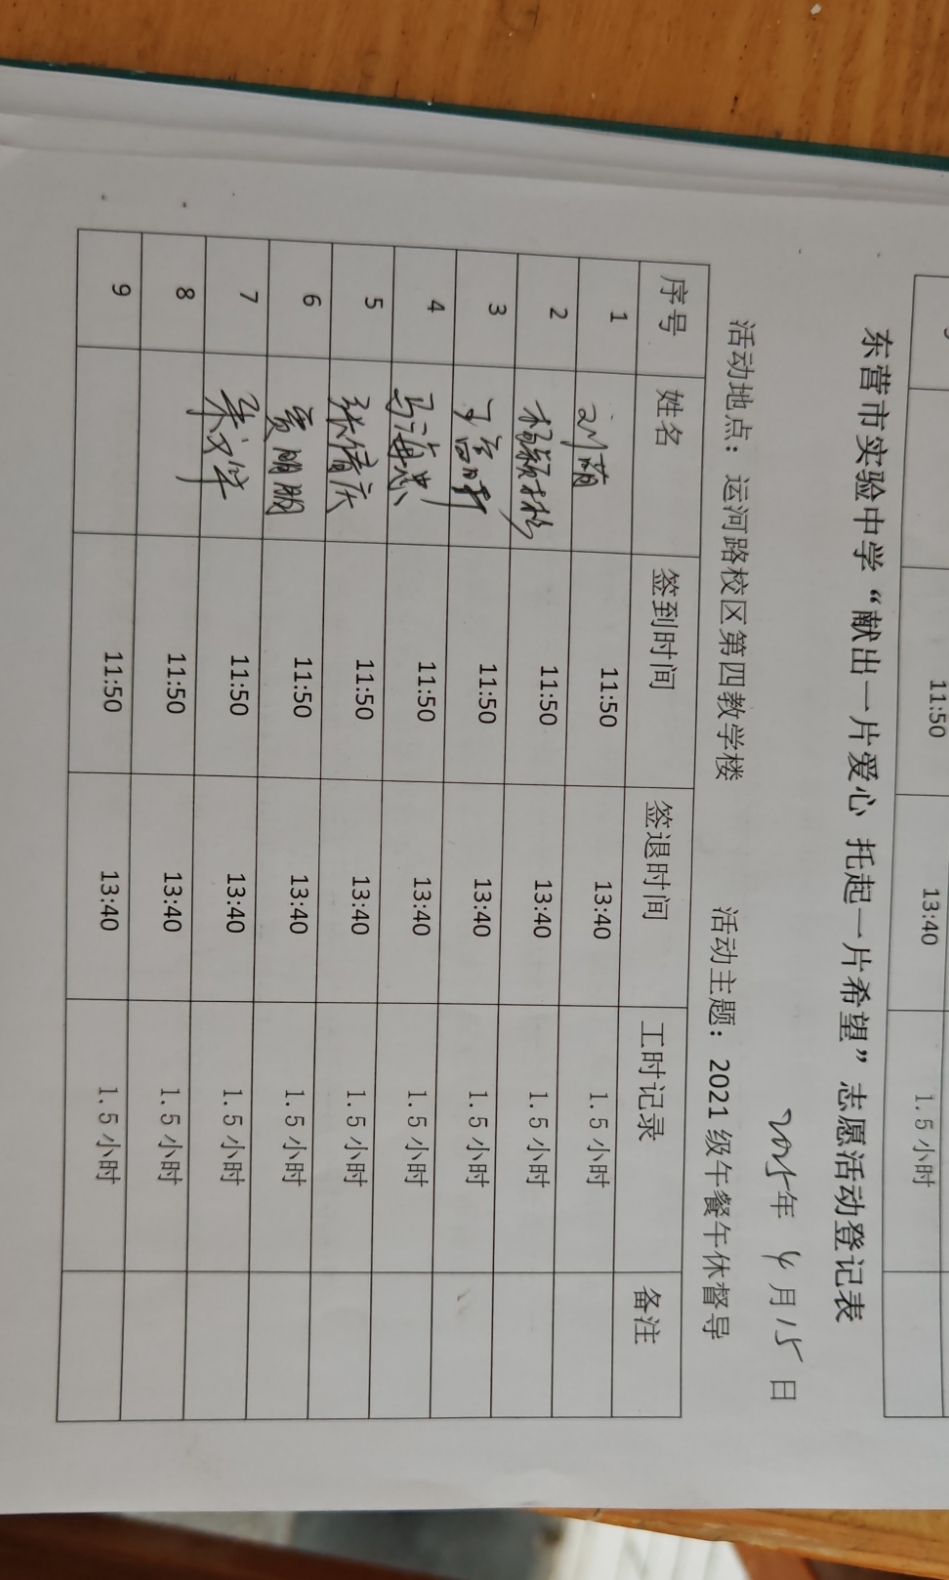 11:50 13:40 1.5小时
东营市实验中学“献出一片爱心 托起一片希望”志愿活动登记表
2025年 4月15日
活动地点：运河路校区第四教学楼 活动主题：2021级午餐午休督导
序号 姓名 签到时间 签退时间 工时记录 备注
1 刘萌 11:50 13:40 1.5小时
2 杨颖彬 11:50 13:40 1.5小时
3 11:50 13:40 1.5小时
4 马海忠 11:50 13:40 1.5小时
5 张倩庆 11:50 13:40 1.5小时
6 贾朋朋 11:50 13:40 1.5小时
7 朱文华 11:50 13:40 1.5小时
8 11:50 13:40 1.5小时
9 11:50 13:40 1.5小时